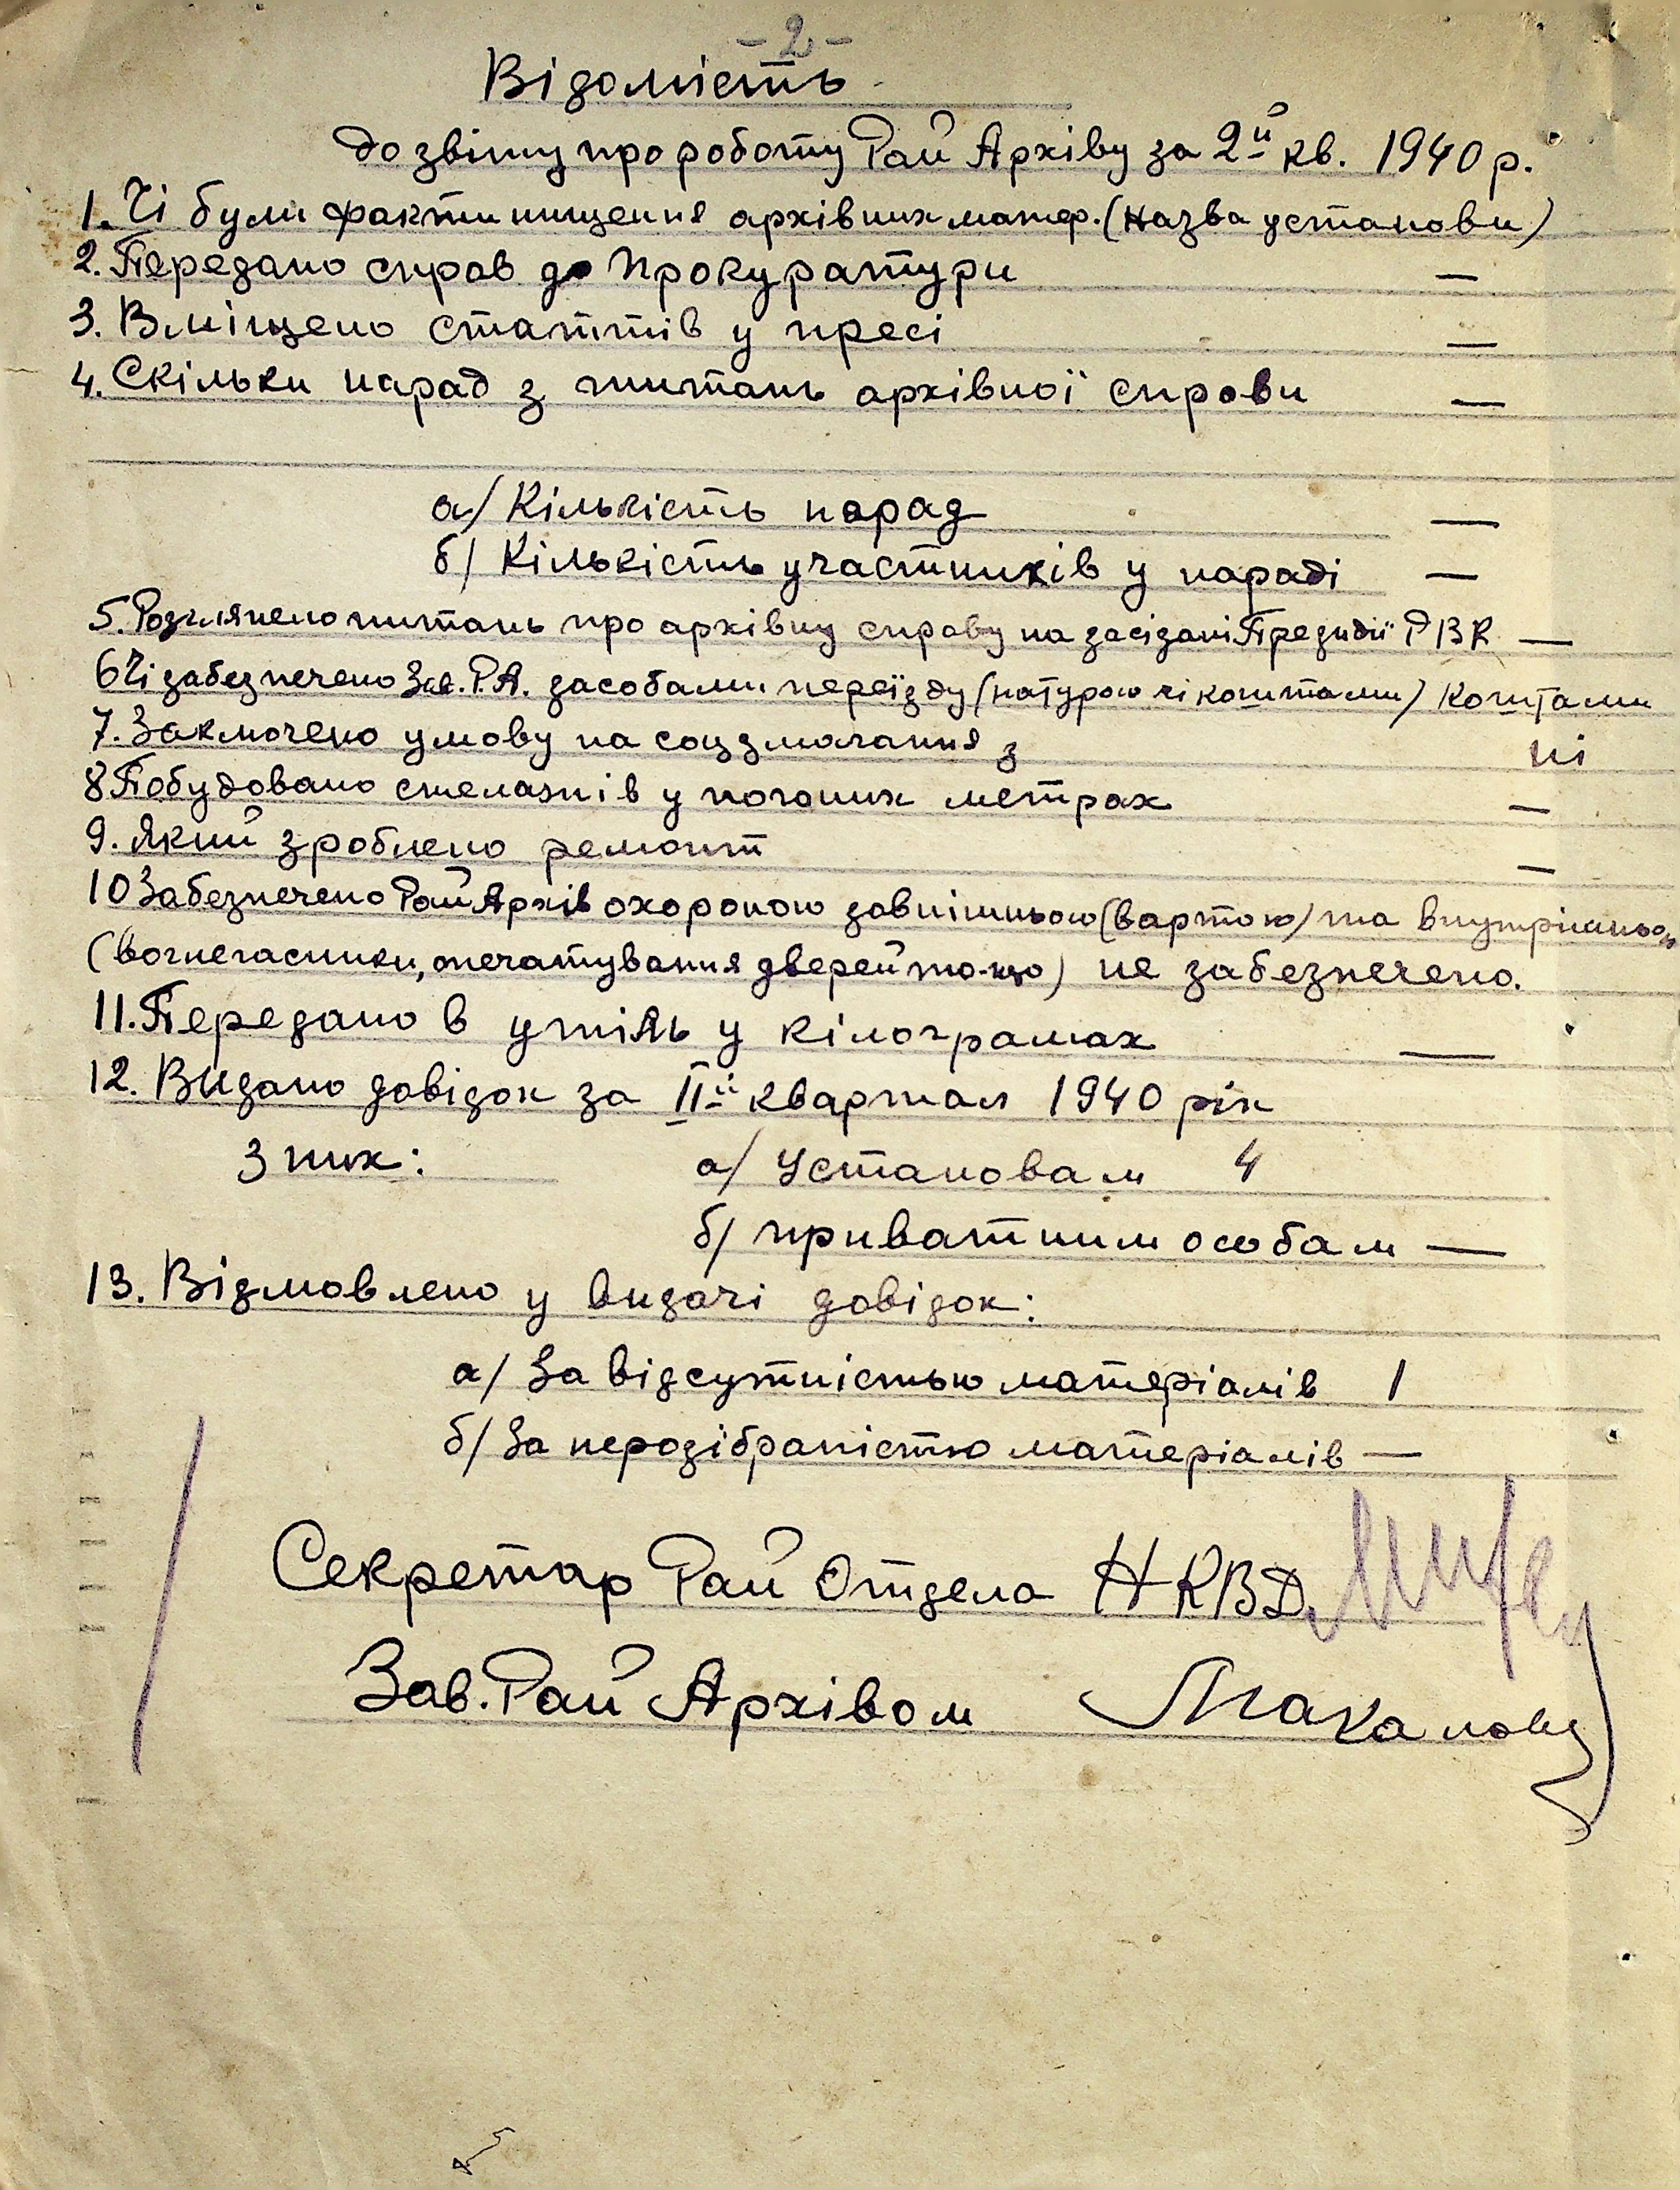 - 2 -
Відомість
до звіту про роботу Рай Архіву за 2й кв. 1940 р.
1. Чі були факти нищення архівних матер. (Назва установи)
2. Передано справ до Прокуратури —
3. Вміщено статтів у пресі —
4. Скільки нарад з питань архівної справи —
а/ Кількість нарад —
б/ Кількість участників у нараді —
5. Розглянено питань про архівну справу на засідані Президії РВК —
6 Чі забезпечено Зав. Р.А. засобами переїзду (натурою чі коштами) Коштами
7. Заключено умову на соцзмагання з ні
8 Побудовано стелажів у погоних метрах —
9. Який зроблено ремонт —
10 Забезпечено Рай Архів охороною зовнішньою (вартою) та внутрішньою
(вогнегасники, опечатування дверей то-що) не забезпечено.
11. Передано в утіль у кілограмах —
12. Видано довідок за IIй квартал 1940 рік
З них: а/ Установам 4
б/ приватним особам —
13. Відмовлено у видачі довідок:
а/ За відсутністью матеріалів 1
б/ За нерозібраністю матеріалів —
Секретар Рай Отдела НКВД
Зав. Рай Архівом